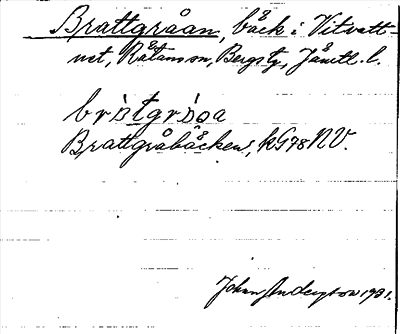 Brattgråan, bäck i Vitvatt-
net, Rätans sn, Bergs tg, Jämtl. l.
Brattgråbäcken, k G98 NV.
Johan Anderson 1931.